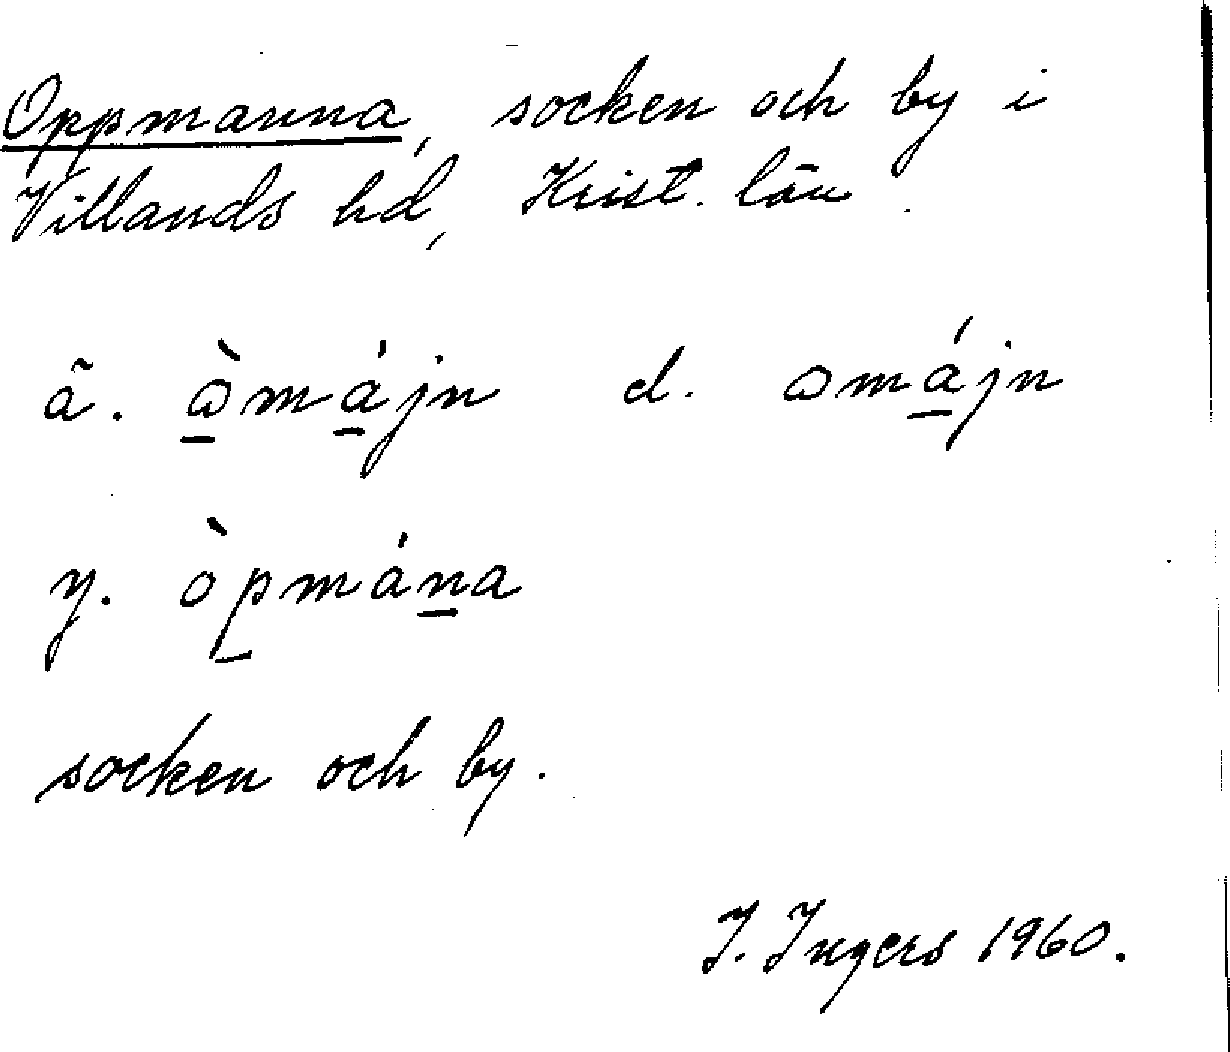 Oppmanna, socken och by i
Villands hd, Krist. län.
ä. ɷ̱̀má̱jn d. ɷmá̱jn
y. òp̱máṉa
socken och by.
I. Ingers 1960.